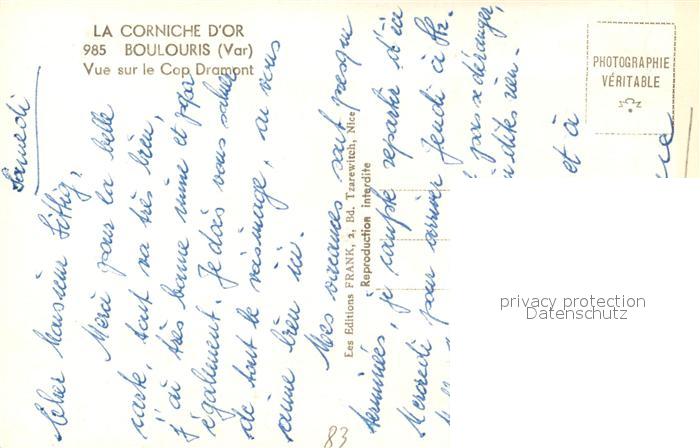 LA CORNICHE D'OR
985 BOULOURIS (Var)
Vue sur le Cap Dramont
Samedi
Cher Monsieur
Merci pour la belle
carte, tout va très bien,
j'ai très bonne mine et papa
également. Je dois vous saluer
de tout le voisinage, on vous
aime bien ici.
Mes vacances sont presque
terminées, je compte repartir d'ici
Mercredi pour arriver Jeudi à
pas se déranger,
dites rien
et à
Les Editions FRANK, 2, Bd. Tzarewitch, Nice
Reproduction interdite
PHOTOGRAPHIE
VÉRITABLE
privacy protection
Datenschutz
83